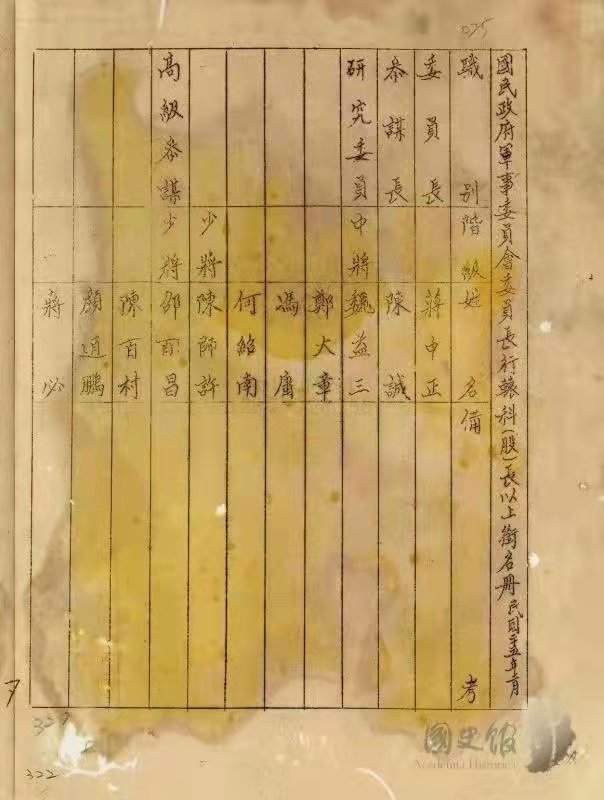 國民政府軍事委員會委員長行轅科(股)長以上銜名冊 民國
職別 階級 姓名 備考
委員長 蔣中正
叅謀長 陳誠
研究委員 中將 魏益三
鄭大章
馮庸
何紹南
少將 陳師許
高級叅謀 少將 邵百昌
陳百村
顏逍鵬
蔣必
322
國史館
Academia Historica